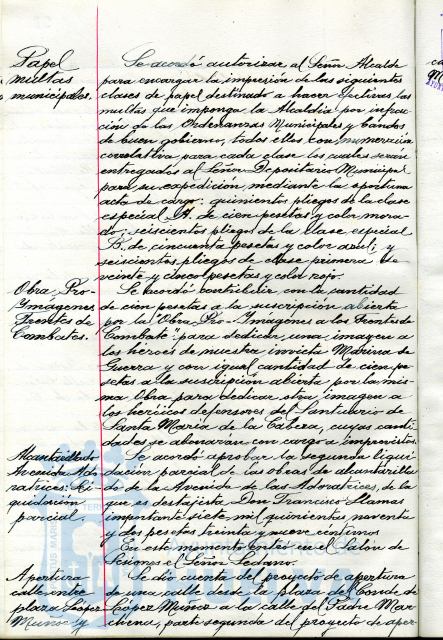 Papel
multas
municipales.
Se acordó autorizar al Señor Alcalde
para encargar la impresión de las siguientes
clases de papel destinado a hacer efectivas las
multas que imponga la Alcaldía por infrac-
ción de las Ordenanzas Municipales y bandos
de buen gobierno, todos ellos con numeración
correlativa para cada clase los cuales serán
entregados al Señor Depositario Municipal
para su expedición, mediante la oportuna
acta de cargo: quinientos pliegos de la clase
especial A. de cien pesetas y color mora-
do; seiscientos pliegos de la clase especial
B. de cincuenta pesetas y color azul; y
seiscientos pliegos de clase primera de
veinte y cinco pesetas y color rojo.
Obra Pro-
Imágenes
Frentes de
Combates.
Se acordó contribuir con la cantidad
de cien pesetas a la suscripción abierta
por la "Obra Pro-Imágenes a los Frentes de
Combate" para dedicar una imagen a
los héroes de nuestra invicta Marina de
Guerra y con igual cantidad de cien pe-
setas a la suscripción abierta por la mis-
ma Obra para dedicar otra imagen a
los heróicos defensores del Santuario de
Santa María de la Cabeza, cuyas canti-
dades se abonarán con cargo a imprevistos.
Alcantarillado
Avenida Ado-
ratrices. Li-
quidación
parcial.
Se acordó aprobar la segunda liqui-
dación parcial de las obras de alcantarilla-
do de la Avenida de las Adoratrices, de la
que es destajista Don Francisco Llamas
importante siete mil quinientas noventa
y dos pesetas treinta y nueve céntimos
En este momento entra en el Salón de
Sesiones el Señor Sedano.
Apertura
calle entre
plaza López
Muñoz y
Se dió cuenta del proyecto de apertura
de una calle desde la plaza del Conde de
López Muñoz a la calle del Padre Mar-
chena, parte segunda del proyecto de aper-